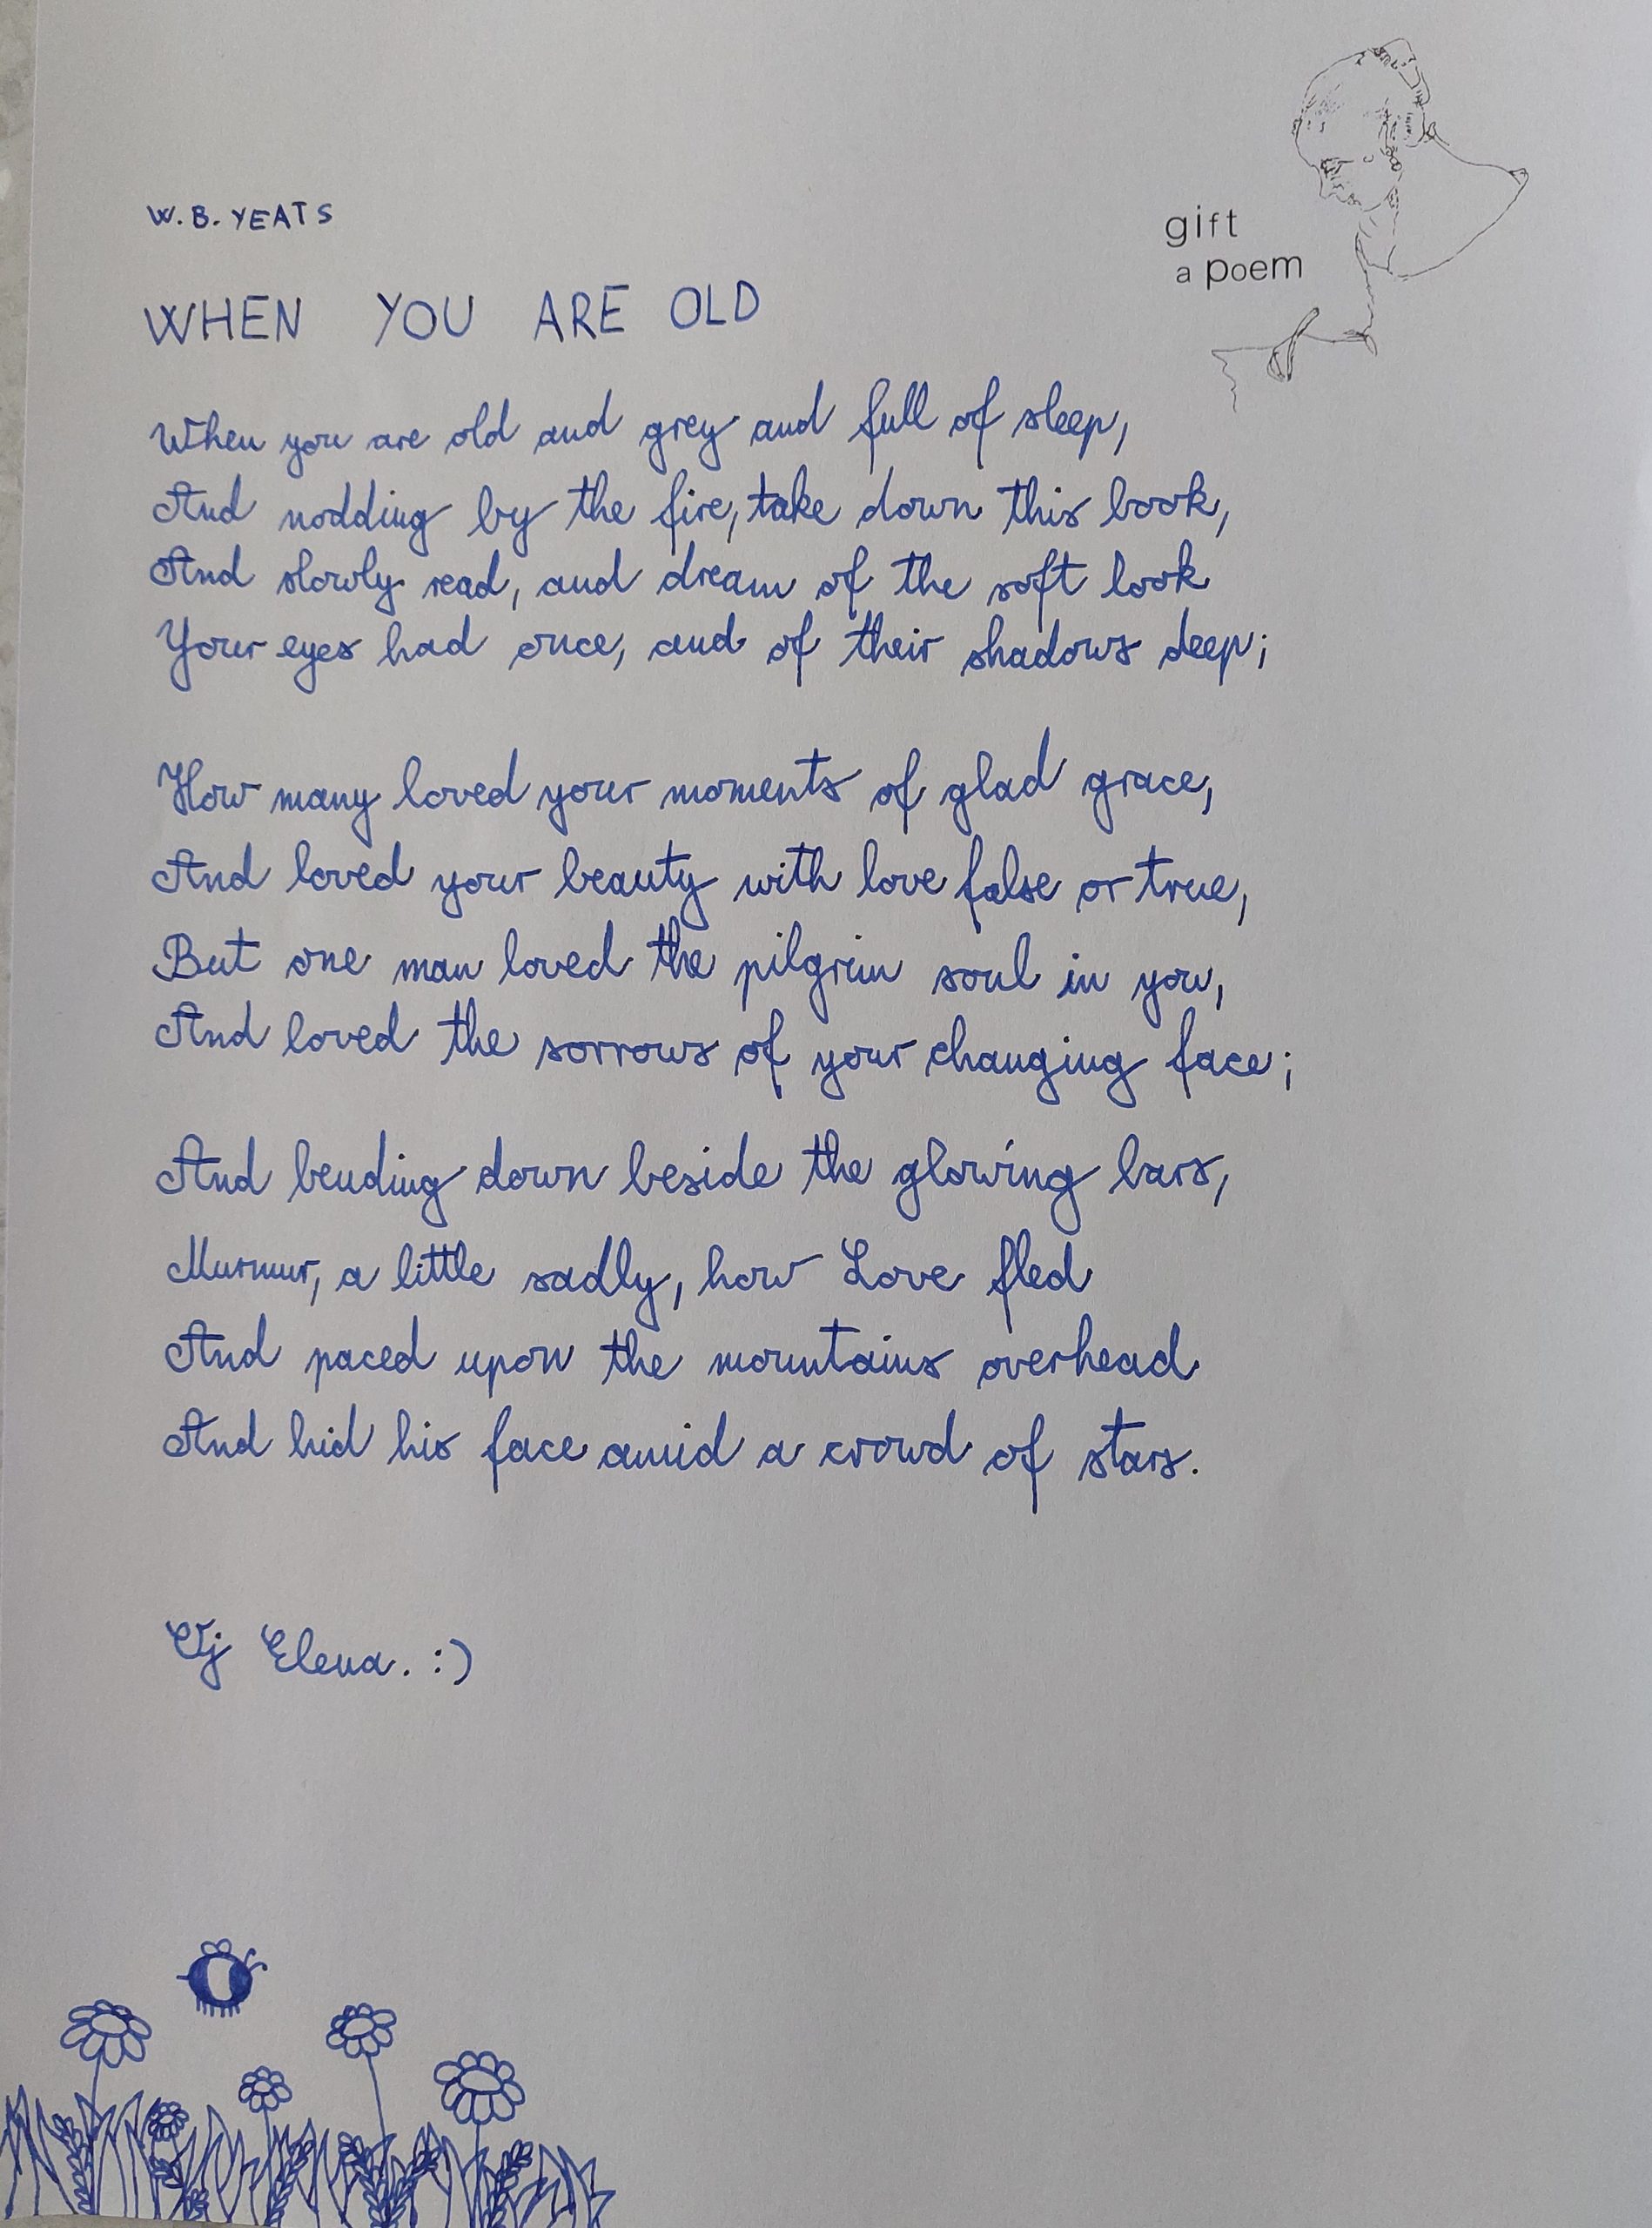 W. B. YEATS
gift
a poem
WHEN YOU ARE OLD
When you are old and grey and full of sleep,
And nodding by the fire, take down this book,
And slowly read, and dream of the soft look
Your eyes had once, and of their shadows deep;
How many loved your moments of glad grace,
And loved your beauty with love false or true,
But one man loved the pilgrim soul in you,
And loved the sorrows of your changing face;
And bending down beside the glowing bars,
Murmur, a little sadly, how Love fled
And paced upon the mountains overhead
And hid his face amid a crowd of stars.
Elena. :)